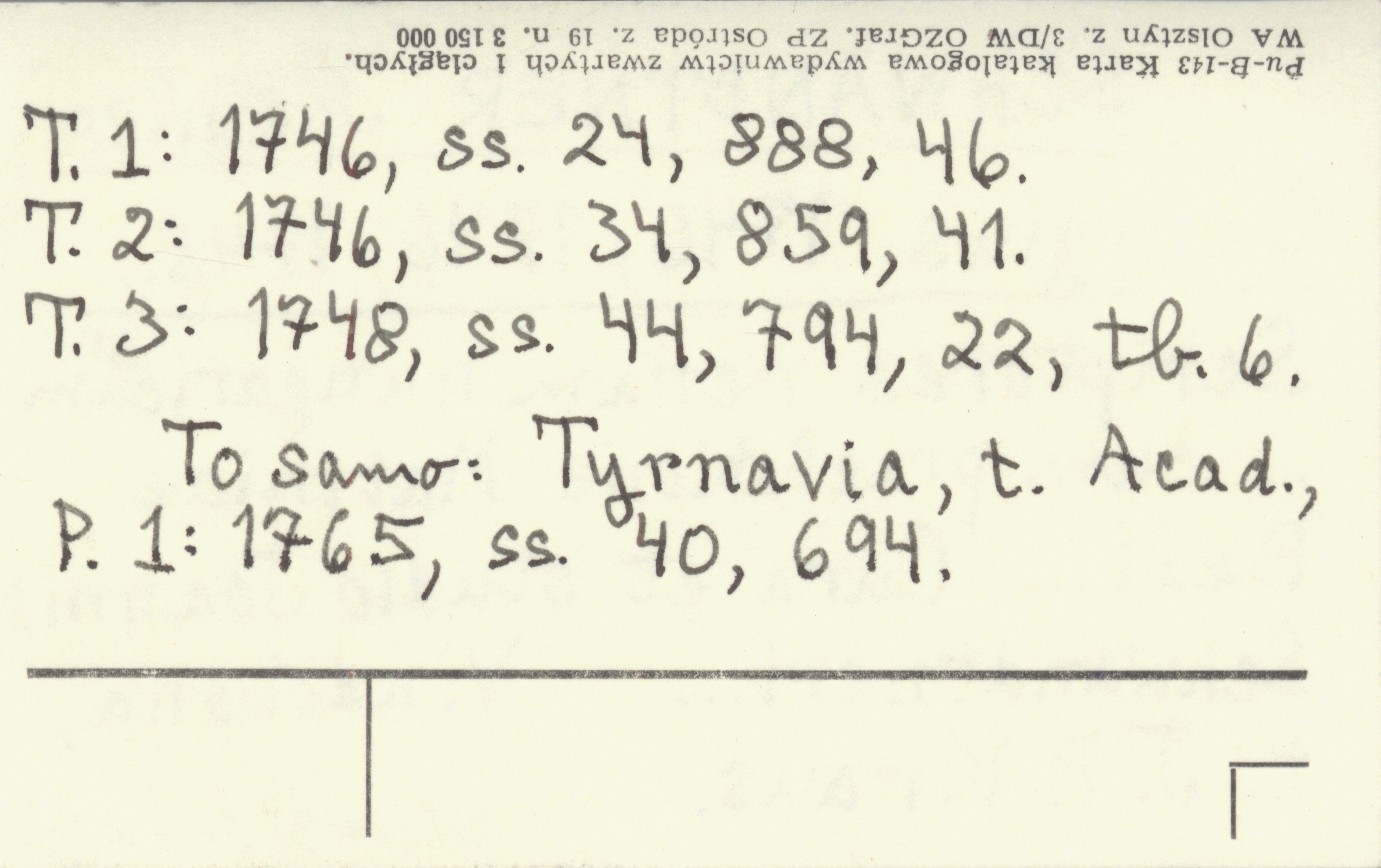 Pu-B-143 Karta katalogowa wydawnictw zwartych i ciągłych.
WA Olsztyn z. 3/DW OZGraf. ZP Ostróda z. 19 n. 3 150 000
T. 1: 1746, ss. 24, 888, 46.
T. 2: 1746, ss. 34, 859, 41.
T. 3: 1748, ss. 44, 794, 22, tb. 6.
To samo: Tyrnavia, t. Acad.,
P. 1: 1765, ss. 40, 694.